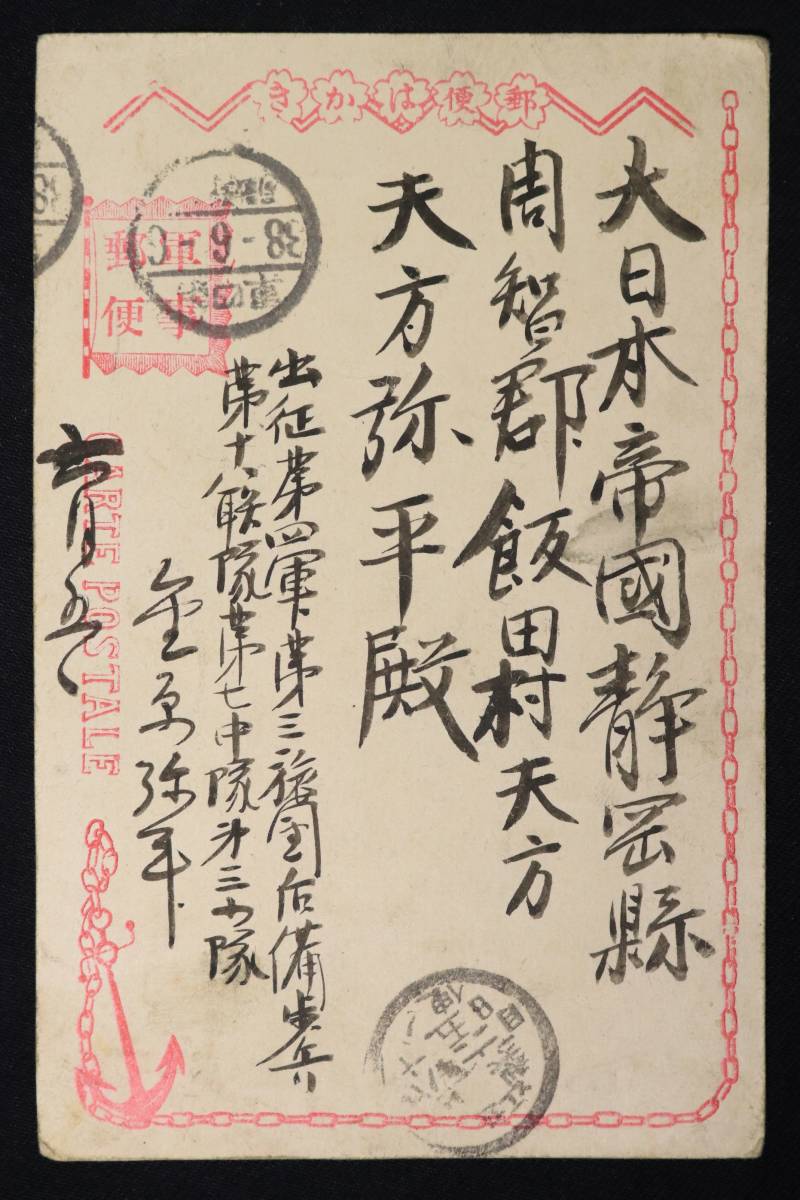 郵便はかき
大日本帝國静岡縣
周智郡飯田村天方
天方弥平殿
軍事
郵便
38-6-
出征第四軍第三旅團后備歩兵
第十八联隊第七中隊第三小隊
金原弥平
六月五
CARTE POSTALE